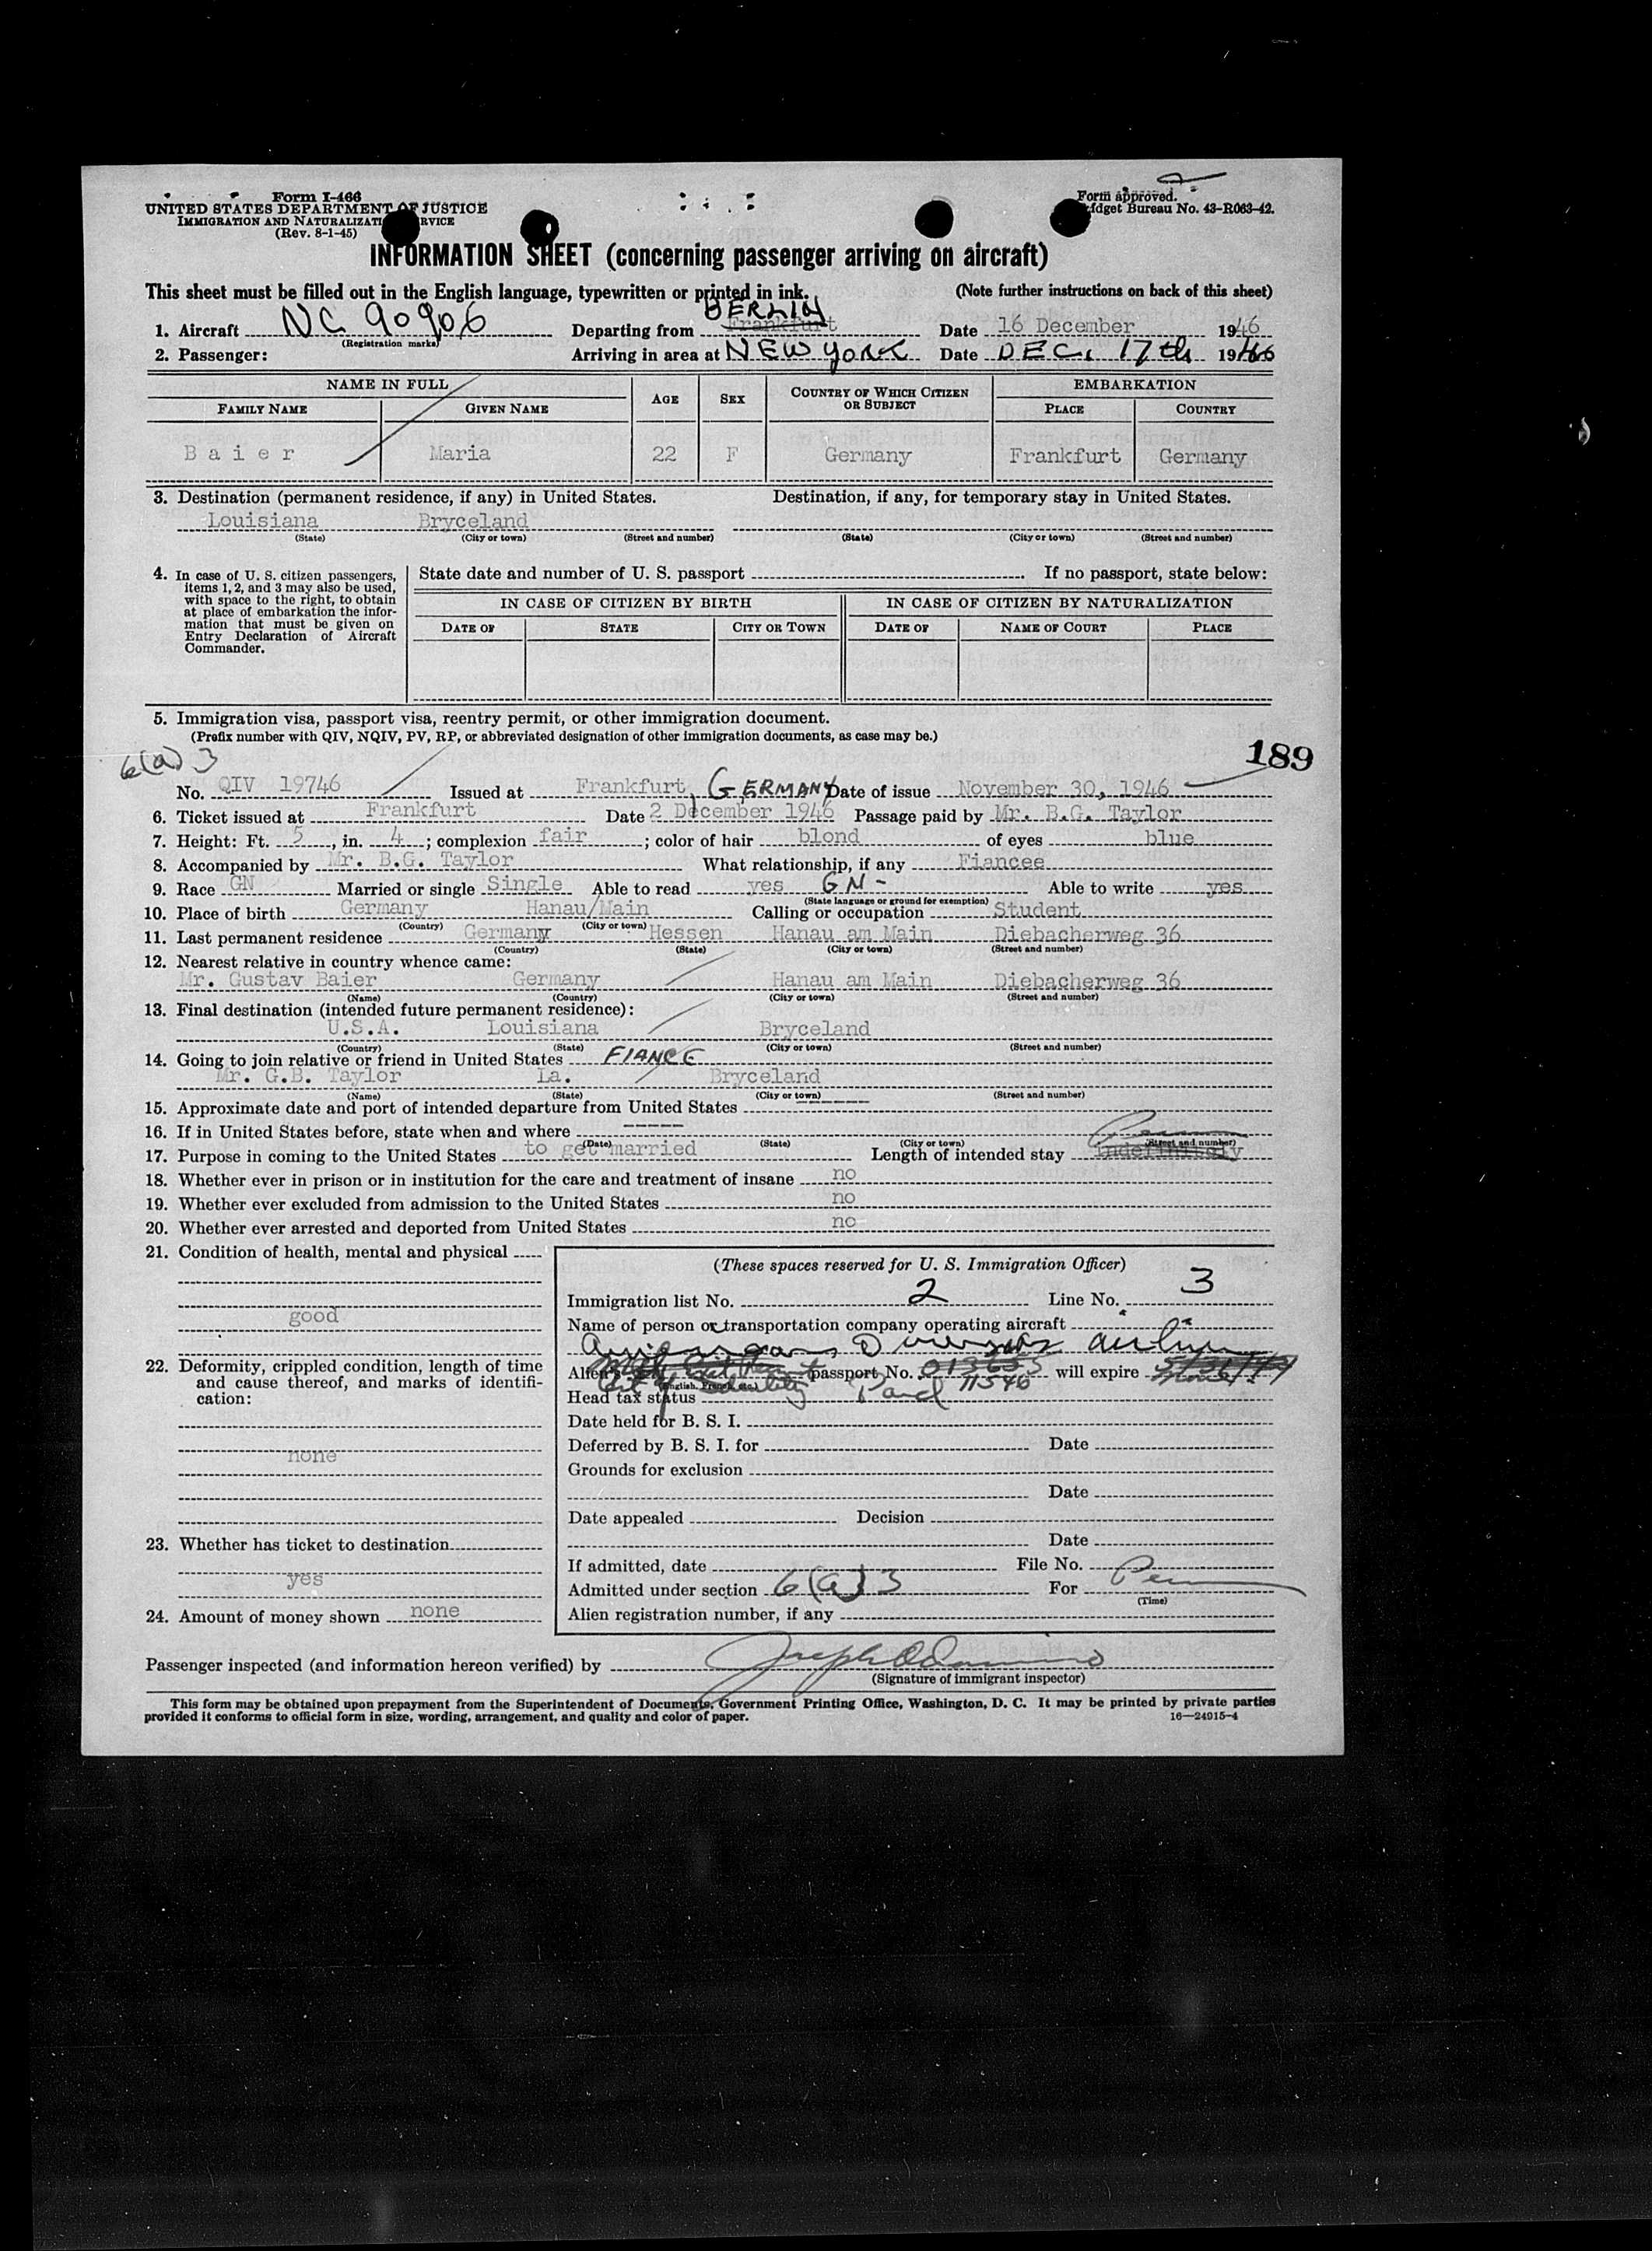 Form I-466
UNITED STATES DEPARTMENT OF JUSTICE
IMMIGRATION AND NATURALIZATI RVICE
(Rev. 8-1-45)
Form approved.
dget Bureau No. 43-R063-42.
INFORMATION SHEET (concerning passenger arriving on aircraft)
This sheet must be filled out in the English language, typewritten or printed in ink. (Note further instructions on back of this sheet)
BERLIN
1. Aircraft NC 90906 Departing from Frankfurt Date 16 December 1946
(Registration marks)
2. Passenger: Arriving in area at NEW YORK Date DEC. 17th 1946
NAME IN FULL EMBARKATION
FAMILY NAME GIVEN NAME AGE SEX COUNTRY OF WHICH CITIZEN OR SUBJECT PLACE COUNTRY
Baier Maria 22 F Germany Frankfurt Germany
3. Destination (permanent residence, if any) in United States. Destination, if any, for temporary stay in United States.
Louisiana Bryceland
(State) (City or town) (Street and number) (State) (City or town) (Street and number)
4. In case of U. S. citizen passengers, items 1, 2, and 3 may also be used, with space to the right, to obtain at place of embarkation the information that must be given on Entry Declaration of Aircraft Commander.
State date and number of U. S. passport If no passport, state below:
IN CASE OF CITIZEN BY BIRTH IN CASE OF CITIZEN BY NATURALIZATION
DATE OF STATE CITY OR TOWN DATE OF NAME OF COURT PLACE
5. Immigration visa, passport visa, reentry permit, or other immigration document.
(Prefix number with QIV, NQIV, PV, RP, or abbreviated designation of other immigration documents, as case may be.)
6(a) 3
189
No. QIV 19746 Issued at Frankfurt, GERMANY Date of issue November 30, 1946
6. Ticket issued at Frankfurt Date 2 December 1946 Passage paid by Mr. B.G. Taylor
7. Height: Ft. 5, in. 4; complexion fair; color of hair blond of eyes blue
8. Accompanied by Mr. B.G. Taylor What relationship, if any Fiancee
9. Race GN Married or single Single Able to read yes GN - Able to write yes
(State language or ground for exemption)
10. Place of birth Germany Hanau/Main Calling or occupation Student
(Country) (City or town)
11. Last permanent residence Germany Hessen Hanau am Main Diebacherweg 36
(Country) (State) (City or town) (Street and number)
12. Nearest relative in country whence came:
Mr. Gustav Baier Germany Hanau am Main Diebacherweg 36
(Name) (Country) (City or town) (Street and number)
13. Final destination (intended future permanent residence):
U.S.A. Louisiana Bryceland
(Country) (State) (City or town) (Street and number)
14. Going to join relative or friend in United States FIANCE
Mr. G.B. Taylor La. Bryceland
(Name) (State) (City or town) (Street and number)
15. Approximate date and port of intended departure from United States ------
16. If in United States before, state when and where -----
(Date) (State) (City or town) (Street and number)
17. Purpose in coming to the United States to get married Length of intended stay indefinitely
18. Whether ever in prison or in institution for the care and treatment of insane no
19. Whether ever excluded from admission to the United States no
20. Whether ever arrested and deported from United States no
21. Condition of health, mental and physical
good
22. Deformity, crippled condition, length of time and cause thereof, and marks of identification:
none
23. Whether has ticket to destination
yes
24. Amount of money shown none
(These spaces reserved for U. S. Immigration Officer)
Immigration list No. 2 Line No. 3
Name of person or transportation company operating aircraft
American Overseas Airlines
Alien's passport No. 013653 will expire
(English, French, etc.)
Head tax status Paid 11546
Date held for B. S. I.
Deferred by B. S. I. for Date
Grounds for exclusion
Date
Date appealed Decision
Date
If admitted, date File No.
Admitted under section 6(a) 3 For
(Time)
Alien registration number, if any
Passenger inspected (and information hereon verified) by
(Signature of immigrant inspector)
This form may be obtained upon prepayment from the Superintendent of Documents, Government Printing Office, Washington, D. C. It may be printed by private parties
provided it conforms to official form in size, wording, arrangement, and quality and color of paper. 16—24915-4